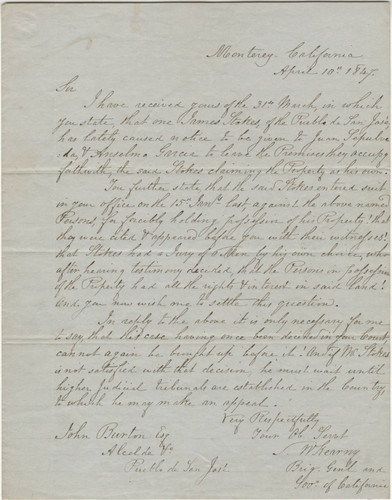 Monterey. California
April 10th 1847.
Sir
I have received yours of the 31st March, in which
you state, that one James Stokes, of the Pueblo de San José
has lately caused notice to be given to Juan
& Anselmo Garcia to leave the Premises they occupy
forthwith, the said Stokes claiming the Property as his own.
You further state that the said Stokes entered suit
in your office on the 15th Jany last against the above named
Persons, for forcibly holding possession of his Property; that
they were cited & appeared before you with their witnesses;
that Stokes had a Jury of 6 Men by his own choice, who
after hearing testimony decided, that the Persons in possession
of the Property had all the rights & interest in said land;
and you now wish me to settle this question.
In reply to the above it is only necessary for me
to say, that his case having once been decided in your Court,
cannot again be brought up before it; And if Mr Stokes
is not satisfied with that decision, he must wait until
higher Judicial tribunals are established in the Country,
to which he may make an appeal.
Very Respectfully
Your Ob. Servt
John Burton Esq
SWKearny
Alcalde &c
Brig. Genl and
Pueblo de San José
Govr. of California